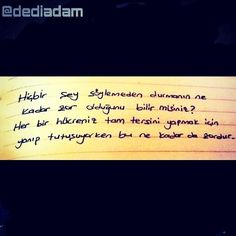 @dediadam
Hiçbir şey söylemeden durmanın ne
kadar zor olduğunu bilir misiniz?
Her bir hücreniz tam tersini yapmak için
yanıp tutuşuyorken bu ne kadar da zordur.